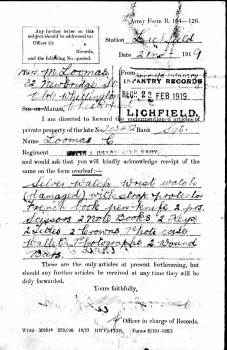 Any further letter on this
subject should be addressed to:
Officer i/c
Records,
and the following No. quoted.
Army Form B. 104—126.
Station Lichfield
2 1919
Mrs M. Loomas
22 Newbridge St
Old Whittington
Chesterfield
INFANTRY RECORDS
22 FEB 1919
LICHFIELD.
SIR OR MADAM,
I am directed to forward the undermentioned articles of
private property of the late No. Rank Sgt.
Name Loomas C
Regiment
and would ask that you will kindly acknowledge receipt of the same
on the form overleaf:—
Silver Watch Wrist watch
(damaged) with strap & protector
French book pen-knife 2 prs.
Scissors 2 Note Books 2 Keys
2 Discs 2 Crowns Photo case
Wallet Photographs 2 Wound
Bars.
These are the only articles at present forthcoming, but
should any further articles be received at any time they will be
duly forwarded.
Yours faithfully,
Officer in charge of Records.